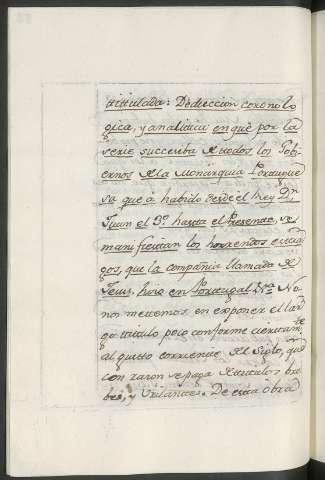 titulada: Deduccion corono lo
gica, y analitica en que por la
serie succesiba de todos los Gobi
ernos de la Monarquia Portugue
sa que a habido desde el Rey Dn
Juan el 3º. hasta el Presente, se
manifiestan los horrendos estra
gos, que la compañia llamada de
Jesus, hizo en Portugal &ra No
nos metemos en exponer el lar
go titulo poco conforme ciertamte
al gusto corriente del Siglo, que
con razon se paga de titulos bre
bes, y brillantes. De esta obra